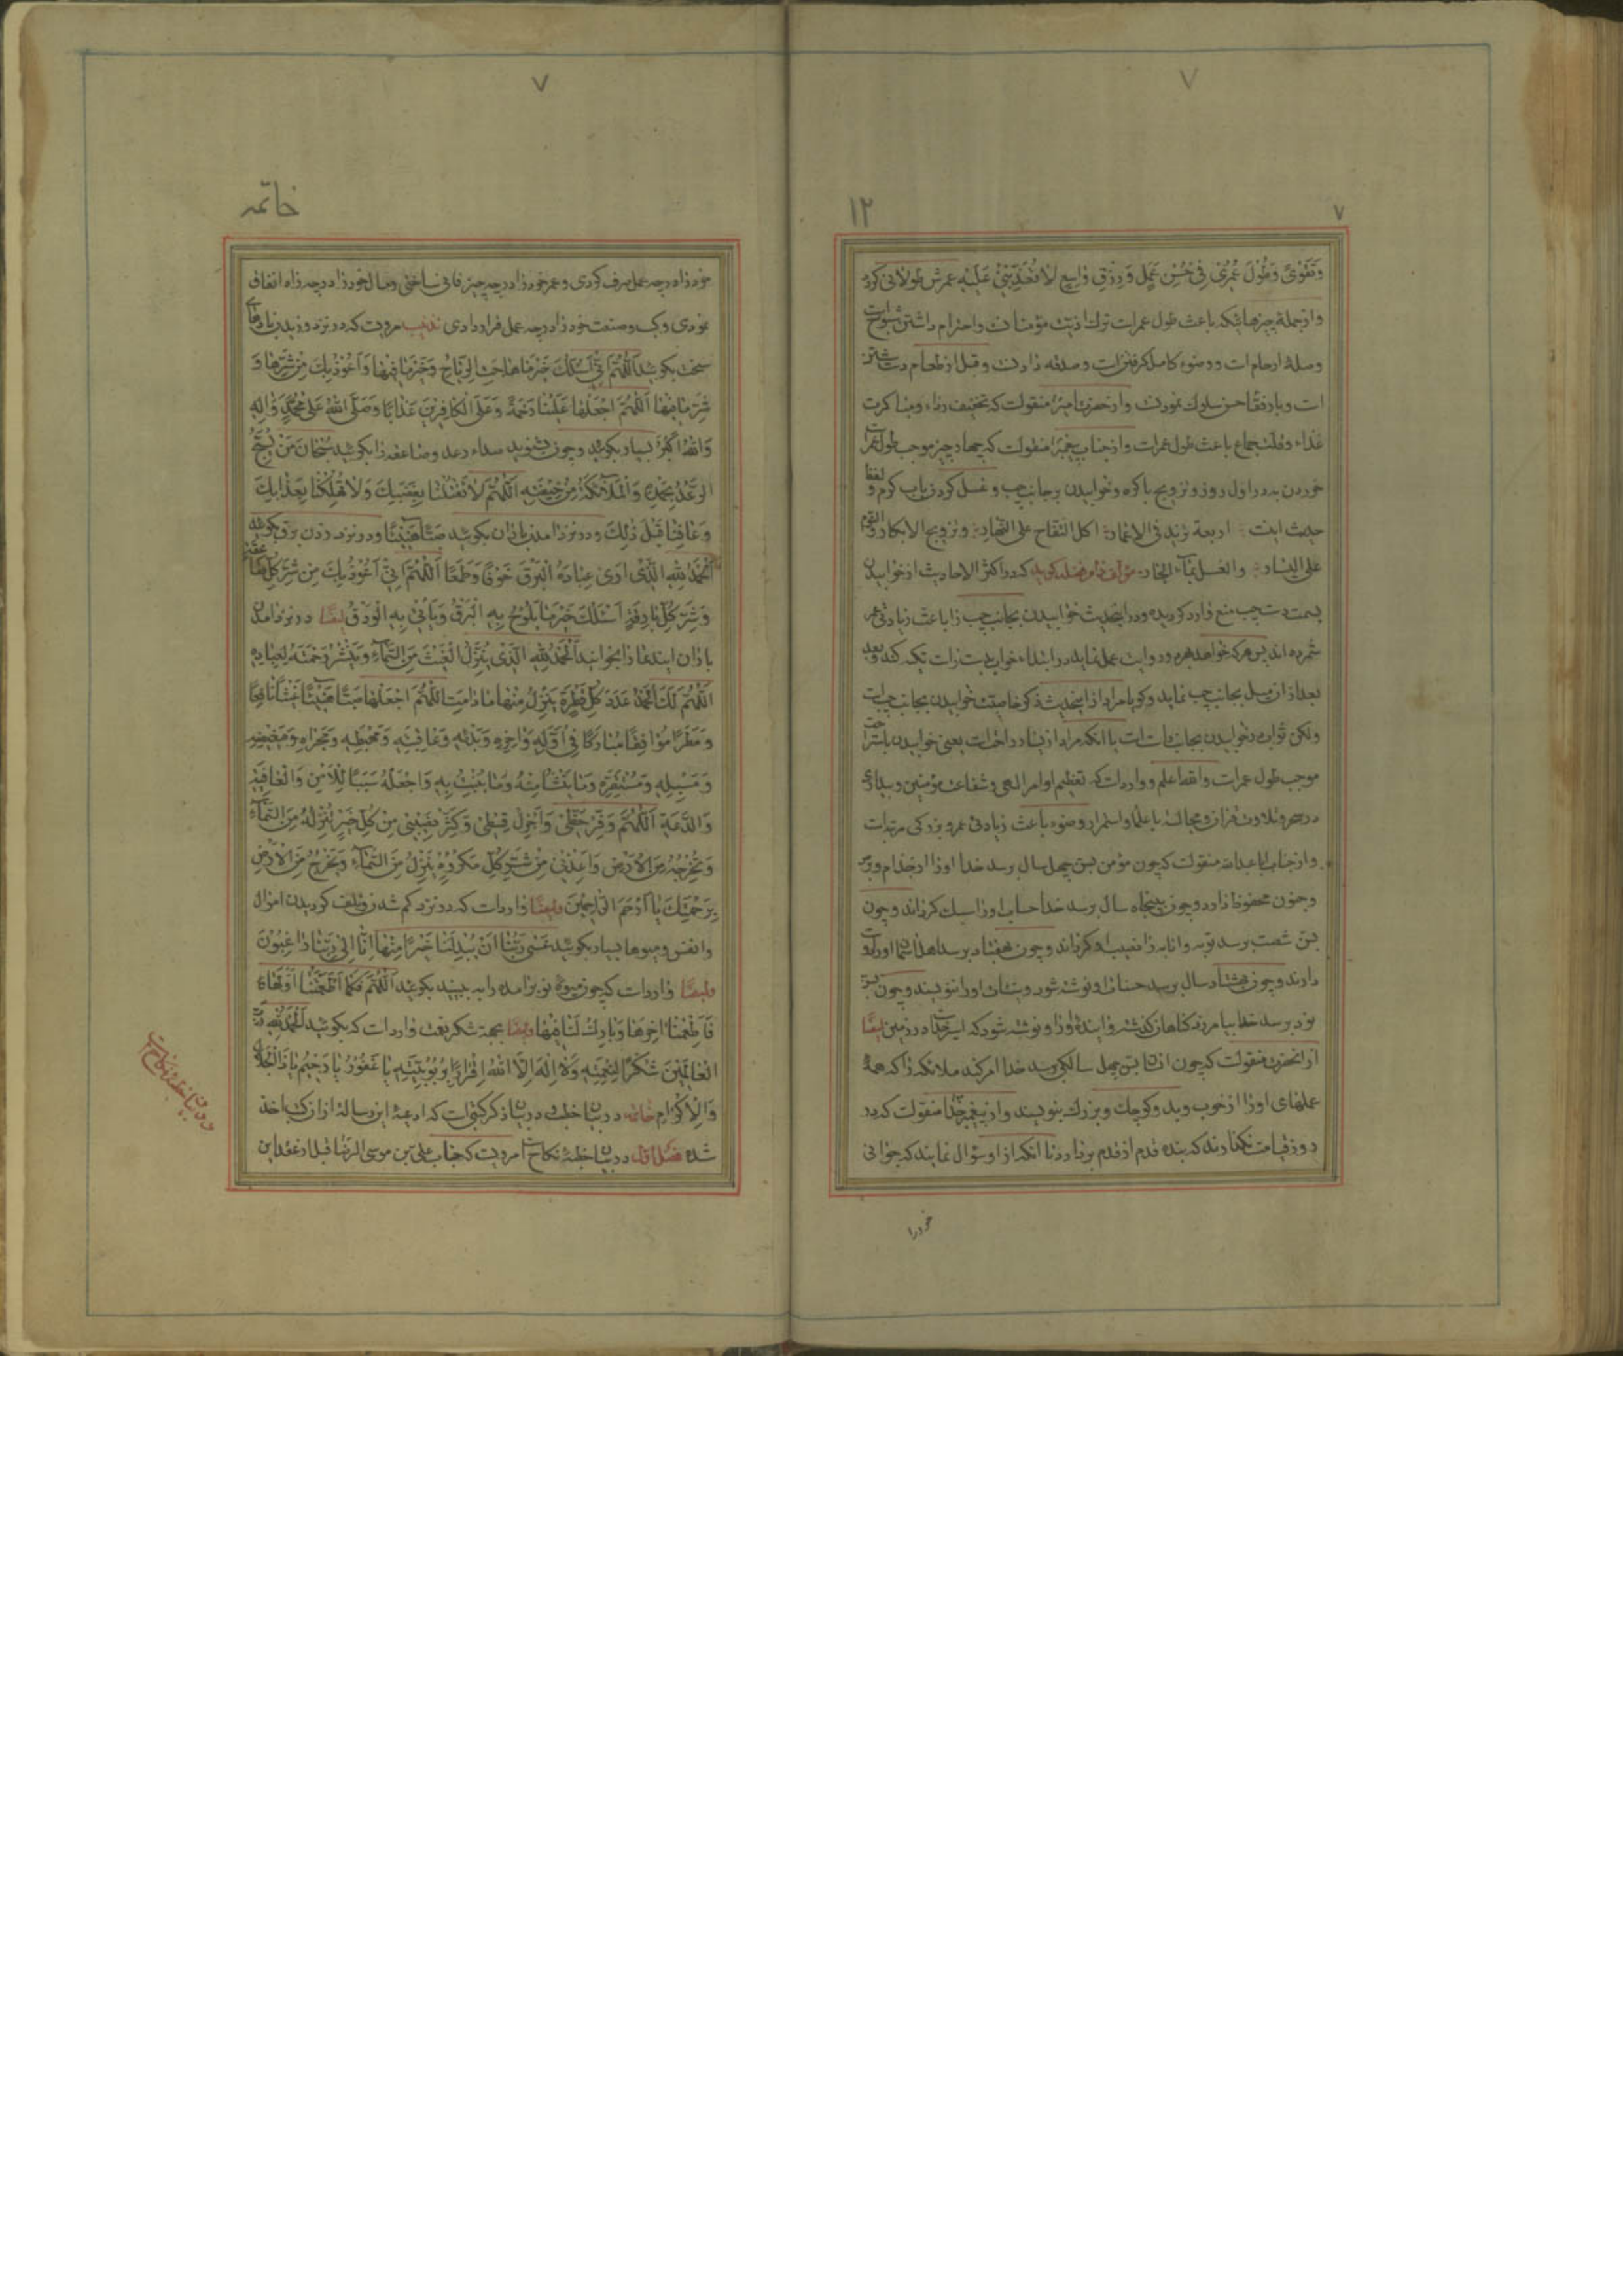 ۷
۱۲
۷
وَتَقْوىً وَطُولَ عُمْرٍ فِي حُسْنِ عَمَلٍ وَرِزْقٍ وٰاسِعٍ لاٰ تُعَذِّبْنِي عَلَيْهِ عمرش طولانى كردد
و از جمله چیزهائیکه باعث طول عمرات ترك اذیت مؤمنان و احترام داشتن شیوخ
وصلهٔ ارحام است و وضوء كامل گرفتن است و صدقه دادن و قبل از طعام دست شستن
است و با رفقا حسن سلوك نمودن و از حضرت امیر منقولست که تخفیف رداء و مباکرت
غذاء و قلت جماع باعث طول عمرات و از جناب پیغمبر منقولست که چهار چیز موجب طول عمر
خوردن به در اول روز و تزویج باکره و خوابیدن بر جانب چپ و غسل کردن باب گرم و لفظ
حدیث اینست اربعة تزید فی الاعمار اکل التفاح علی النهار و تزویج الابکار والنوم
علی الیسار و الغسل بماء الحار مؤلف گوید که در اکثر الاحادیث از خوابیدن
بسمت دست چپ منع وارد گردیده و در اینحدیث خوابیدن بجانب چپ را باعث زیادتی عمر
شمرده اند پس هرکه خواهد بهر دو روایت عمل نماید در ابتداء خواب بدست راست تکیه کند و بعد
بعد از آن میل بجانب چپ نماید و گویا مراد از اینحدیث ذکر خاصیت خوابیدن بجانب چپ است
ولکن ثواب در خوابیدن بجانب راست است یا آنکه مراد از یسار راحت است یعنی خوابیدن باستراحت
موجب طول عمرات و الله اعلم و وارد است که تعظیم اوامر الهی و شفاعت مؤمنین و بیداری
در سحر و تلاوت قرآن و مجالسهٔ با علما و استمرار وضوء باعث زیادتی عمر و بزرگی مرتبه است
و از جناب اباعبدالله منقولست که چون مؤمن بسن چهل سال برسد خدا او را از جذام و برص
و جنون محفوظ دارد و چون به پنجاه سال برسد خدا حساب او را سبك گرداند و چون
بسن شصت برسد توبه و انابه را نصیب او گرداند و چون هفتاد برسد اهل سما او را دوست
دارند و چون بهشتاد سال برسد حسنات او نوشته شود و سیئات او را ننویسند و چون بسن
نود برسد خدا بیامرزد گناهان گذشته و ایندهٔ او را و نوشته شود که اسیر خداست در زمین ایضا
از انحضرت منقولست که چون انسان بسن چهل سالگی برسد خدا امر کند ملائکه را که همهٔ
عملهای او را از خوب و بد و کوچك و بزرك بنویسند و از پیغمبر خدا منقولست که در
روز قیامت نگذارند که بنده قدم از قدم بردارد تا آنکه از او سؤال نمایند که جوانی
خود را
۷
خاتمه
خود را در چه عمل صرف کردی و عمر خود را در چه چیز فانی ساختی و مال خود را در چه راه انفاق
نمودی و کسب و صنعت خود را در چه عمل قرار دادی تذنیب مرویست که در نزد وزیدن بادهای
سخت بگوئید اَللّٰهُمَّ اِنّي اَسْئَلُكَ خَيْرَ مٰا هٰاجَتِ الرِّيٰاحُ وَخَيْرَ مٰا فِيهٰا وَاَعُوذُ بِكَ مِنْ شَرِّهٰا وَ
شَرِّ مٰا فِيهٰا اَللّٰهُمَّ اجْعَلْهٰا عَلَيْنٰا رَحْمَةً وَعَلَى الْكٰافِرِينَ عَذٰابًا وَصَلَّى اللهُ عَلىٰ مُحَمَّدٍ وَاٰلِهِ
وَاللهُ اَكْبَرُ بسیار بگوئید و چون بشنوید صداء رعد و صاعقه را بگوئید سُبْحٰانَ مَنْ يُسَبِّحُ
الرَّعْدُ بِحَمْدِهِ وَالْمَلاٰئِكَةُ مِنْ خِيفَتِهِ اَللّٰهُمَّ لاٰ تَقْتُلْنٰا بِغَضَبِكَ وَلاٰ تُهْلِكْنٰا بِعَذٰابِكَ
وَعٰافِنٰا قَبْلَ ذٰلِكَ و در نزد آمدن باران بگوئید صَبًّا هَنِيئًا و در نزد زدن برق بگوئید
اَلْحَمْدُ لِلّٰهِ الَّذِي اَرىٰ عِبٰادَهُ الْبَرْقَ خَوْفًا وَطَمَعًا اَللّٰهُمَّ اِنّي اَعُوذُ بِكَ مِنْ شَرِّ كُلِّهٰا
وَشَرِّ كُلِّ بٰارِقَةٍ اَسْئَلُكَ خَيْرَ مٰا يَلُوحُ بِهِ الْبَرْقُ وَيَأْتِي بِهِ الْوَدْقُ ایضًا در نزد آمدن
باران این دعا را بخوانید اَلْحَمْدُ لِلّٰهِ الَّذِي يُنَزِّلُ الْغَيْثَ مِنَ السَّمٰاءِ وَيَنْشُرُ رَحْمَتَهُ لِعِبٰادِهِ
اَللّٰهُمَّ لَكَ الْحَمْدُ عَدَدَ كُلِّ قَطْرَةٍ يَنْزِلُ مِنْهٰا مٰا دٰامَتْ اَللّٰهُمَّ اجْعَلْهٰا صَبًّا هَنِيئًا غَيْثًا نٰافِعًا
وَمَطَرًا مُوٰافِقًا مُبٰارَكًا فِي اَوَّلِهِ وَاٰخِرِهِ وَبَدْئِهِ وَعٰاقِبَتِهِ وَمَحْبَطِهِ وَمَجْرٰاهُ وَمَغِيضِهِ
وَمَسِيلِهِ وَمُسْتَقَرِّهِ وَمٰا يَنْشَأُ مِنْهُ وَمٰا يَنْبُتُ بِهِ وَاجْعَلْهُ سَبَبًا لِلْاَمْنِ وَالْعٰافِيَةِ
وَالدَّعَةِ اَللّٰهُمَّ وَفِّرْ حَظّي وَاَجْزِلْ قِسْطِي وَكَثِّرْ نَصِيبِي مِنْ كُلِّ خَيْرٍ تُنْزِلُهُ مِنَ السَّمٰاءِ
وَتُخْرِجُهُ مِنَ الْاَرْضِ وَاَعِذْنِي مِنْ شَرِّ كُلِّ مَكْرُوهٍ يَنْزِلُ مِنَ السَّمٰاءِ وَيَخْرُجُ مِنَ الْاَرْضِ
بِرَحْمَتِكَ يٰا اَرْحَمَ الرّٰاحِمِينَ وایضًا وارد است که در نزد کم شدن و تلف گردیدن اموال
و انفس و میوها بسیار بگوئید عَسىٰ رَبُّنٰا اَنْ يُبْدِلَنٰا خَيْرًا مِنْهٰا اِنّٰا اِلىٰ رَبِّنٰا رٰاغِبُونَ
وایضًا وارد است که چون میوهٔ نوبر آمده را به بینید بگوئید اَللّٰهُمَّ كَمٰا اَطْعَمْتَنٰا اَوَّلَهٰا
فَاَطْعِمْنٰا اٰخِرَهٰا وَبٰارِكْ لَنٰا فِيهٰا وایضًا بجهة شکر نعمت وارد است که بگوئید اَلْحَمْدُ لِلّٰهِ رَبِّ
الْعٰالَمِينَ شُكْرًا لِنِعْمَتِهِ وَلاٰ اِلٰهَ اِلاَّ اللهُ اِقْرٰارًا بِرُبُوبِيَّتِهِ يٰا غَفُورُ يٰا رَحِيمُ يٰا ذَا الْجَلاٰلِ
وَالْاِكْرٰامِ خاتمه در بیان خطب و در بیان ذکر کتبی است که ادعیهٔ این رساله از آن کتب اخذ
شده فصل اول در بیان خطبهٔ نکاح مرویست که جناب علی بن موسی الرضا قبل از عقد این
در بیان خطبهٔ نکاح است